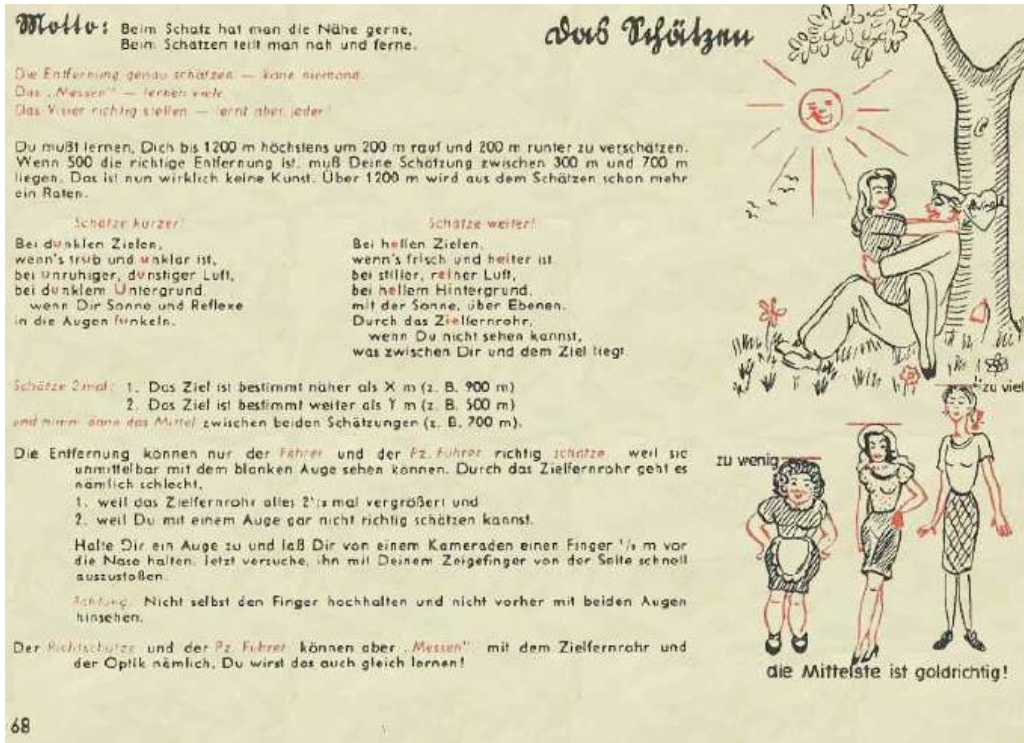 Motto: Beim Schatz hat man die Nähe gerne,
Beim Schätzen teilt man nah und ferne.
Das Schätzen
Die Entfernung genau schätzen — kann niemand.
Das „Messen" — lernen viele.
Das Visier richtig stellen — lernt aber jeder!
Du mußt lernen, Dich bis 1200 m höchstens um 200 m rauf und 200 m runter zu verschätzen.
Wenn 500 die richtige Entfernung ist, muß Deine Schätzung zwischen 300 m und 700 m
liegen. Das ist nun wirklich keine Kunst. Über 1200 m wird aus dem Schätzen schon mehr
ein Raten.
Schätze kürzer!
Bei dunklen Zielen,
wenn's trüb und unklar ist,
bei unruhiger, dunstiger Luft,
bei dunklem Untergrund,
wenn Dir Sonne und Reflexe
in die Augen funkeln.
Schätze weiter!
Bei hellen Zielen,
wenn's frisch und heiter ist
bei stiller, reiner Luft,
bei hellem Hintergrund,
mit der Sonne, über Ebenen.
Durch das Zielfernrohr,
wenn Du nicht sehen kannst,
was zwischen Dir und dem Ziel liegt.
Schätze 2mal: 1. Das Ziel ist bestimmt näher als X m (z. B. 900 m)
2. Das Ziel ist bestimmt weiter als Y m (z. B. 500 m)
und nimm dann das Mittel zwischen beiden Schätzungen (z. B. 700 m).
Die Entfernung können nur der Fahrer und der Pz. Führer richtig schätzen weil sie
unmittelbar mit dem blanken Auge sehen können. Durch das Zielfernrohr geht es
nämlich schlecht,
1. weil das Zielfernrohr alles 2¹/₂ mal vergrößert und
2. weil Du mit einem Auge gar nicht richtig schätzen kannst.
Halte Dir ein Auge zu und laß Dir von einem Kameraden einen Finger ¹/₂ m vor
die Nase halten. Jetzt versuche, ihn mit Deinem Zeigefinger von der Seite schnell
auszustoßen.
Achtung: Nicht selbst den Finger hochhalten und nicht vorher mit beiden Augen
hinsehen.
Der Richtschütze und der Pz. Führer können aber „Messen" mit dem Zielfernrohr und
der Optik nämlich. Du wirst das auch gleich lernen!
zu viel
zu wenig
die Mittelste ist goldrichtig!
68